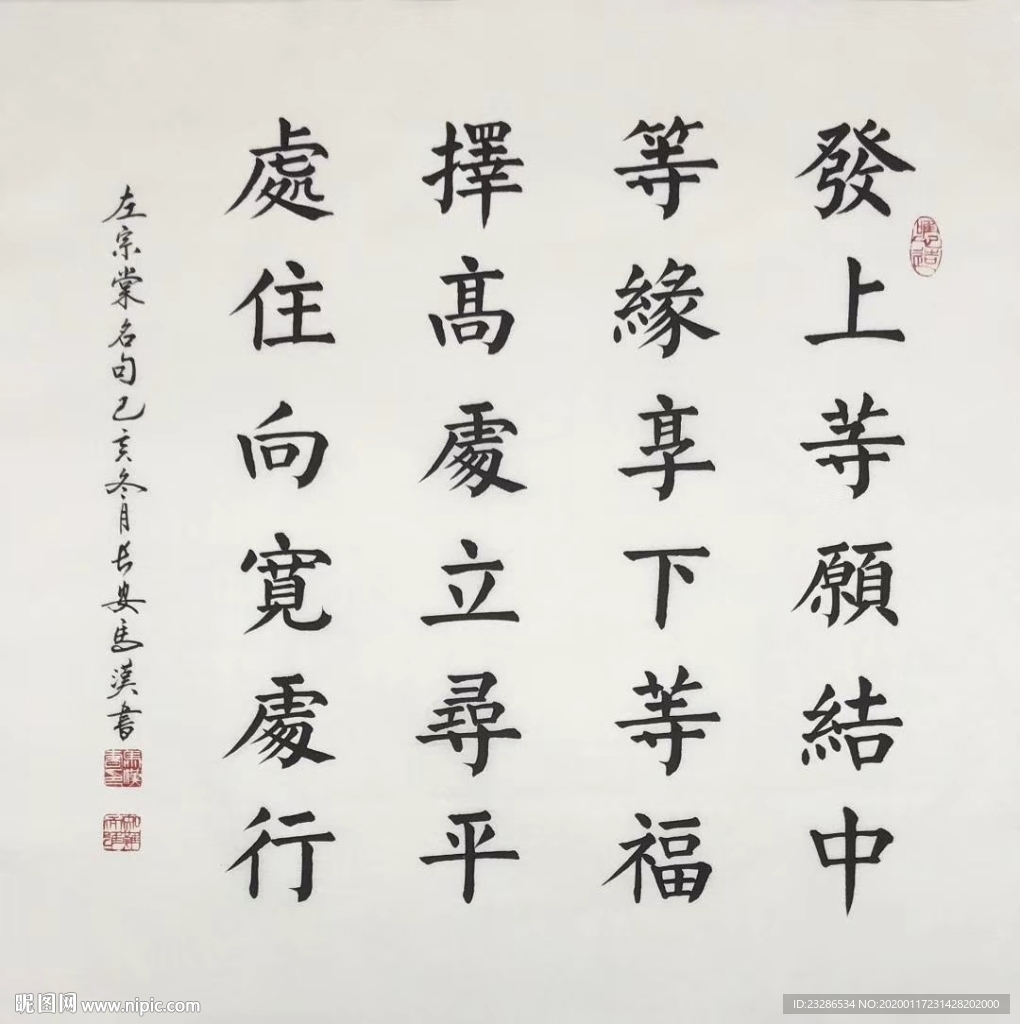 發上等願結中
等緣享下等福
擇高處立尋平
處住向寬處行
左宗棠名句己亥冬月長安馬漢書
昵图网 www.nipic.com
ID:23286534 NO:20200117231428202000